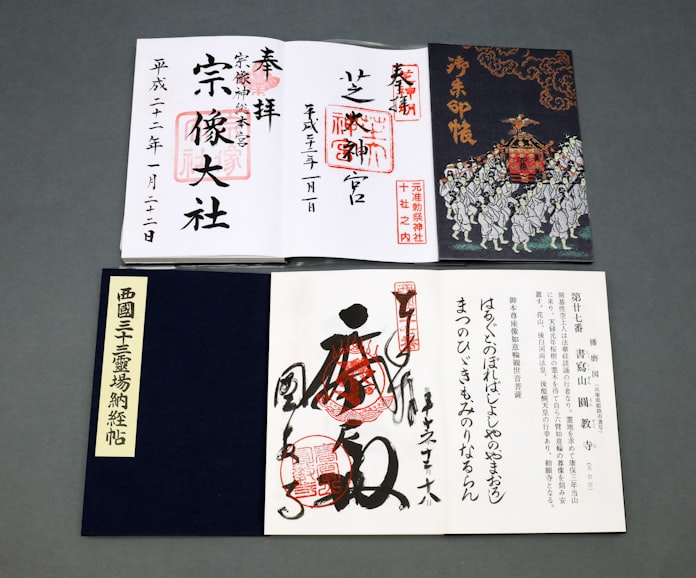 御朱印帳
奉拝
芝神明
芝大神宮
平成二十三年一月一日
元准勅祭神社
十社之内
奉拝
宗像神総本宮
宗像大社
平成二十二年一月二十二日
第廿七番 書寫山圓教寺
播磨国
(天台宗)
開基性空上人は法華経読誦の行者なり。霊地を求めて康保三年当山
に来り、天禄元年桜樹の霊木を得て自ら六臂如意輪の尊像を刻み安
置す。花山、後白河両法皇、後醍醐天皇の行幸あり、勅願寺となる。
御本尊座像如意輪観世音菩薩
はるばるとのぼればしよしやのやまおろし
まつのひゞきもみのりなるらん
圓教寺
西國三十三霊場納経帖